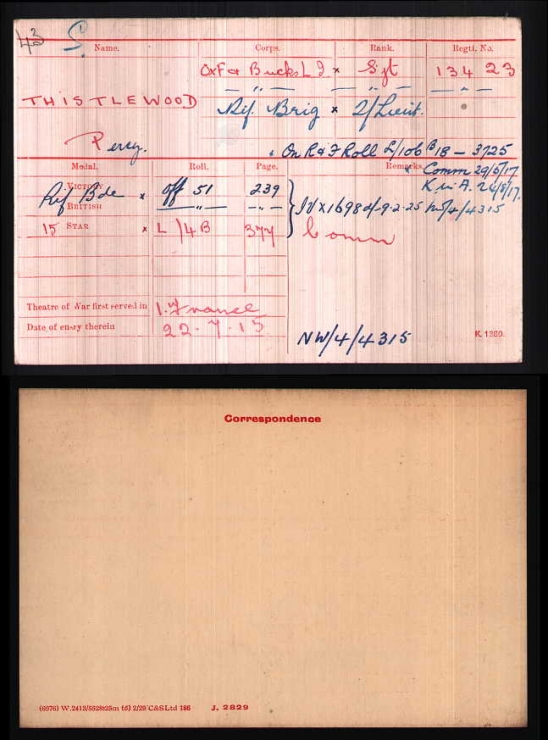 43 S.
Name. Corps. Rank. Regtl. No.
Oxf & Bucks L I × Sgt 13423
THISTLEWOOD — " — — " — — " —
Rif. Brig × 2/Lieut. "
Percy.
× On R & F Roll L/106 B18 — 3725
Medal. Roll. Page. Remarks.
× Comm 29/5/17
VICTORY Rif Bde × Off 51 239 K in A. 24/8/17.
BRITISH — " — — " — IV × 1698 d/- 9-2-25 NW/4/4315
15 STAR × L/4B 377 Comm
Theatre of War first served in 1. France
Date of entry therein 22.7.15
NW/4/4315 K. 1380.
Correspondence
(6976) W.2412/5528 25m (5) 2/20 C&S Ltd 186 J. 2829